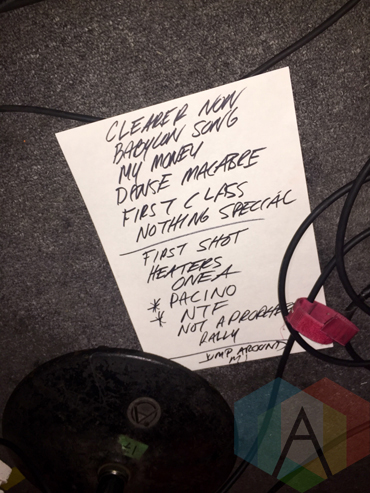 CLEARER NOW
BABYLON SONG
MY MONEY
DANSE MACABRE
FIRST CLASS
NOTHING SPECIAL
FIRST SHOT
HEATERS
ONE A
* PACINO
* NTF
NOT A
RALLY
JUMP AROUND
A